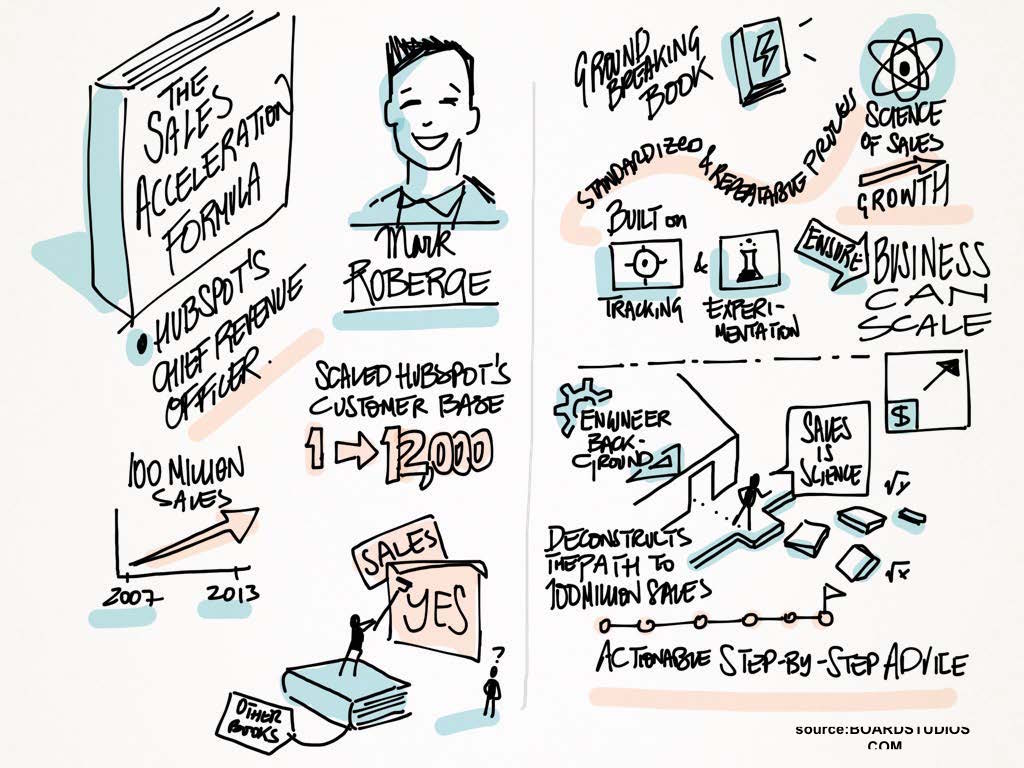 THE
SALES
ACCELERATION
FORMULA
• HUBSPOT'S
CHIEF REVENUE
OFFICER.
Mark
ROBERGE
SCALED HUBSPOT'S
CUSTOMER BASE
1 → 12,000
100 MILLION
SALES
2007 2013
SALES
YES
?
OTHER
BOOKS
GROUND
BREAKING
BOOK
SCIENCE
OF SALES
GROWTH
STANDARDIZED & REPEATABLE PROCESS
BUILT on
TRACKING
&
EXPERI-
MENTATION
ENSURE
BUSINESS
CAN
SCALE
$
ENGINEER
BACK-
GROUND
SALES
IS
SCIENCE
√y
√x
DECONSTRUCTS
THE PATH TO
100 MILLION SALES
ACTIONABLE STEP-BY-STEP ADVICE
source:BOARDSTUDIOS
COM